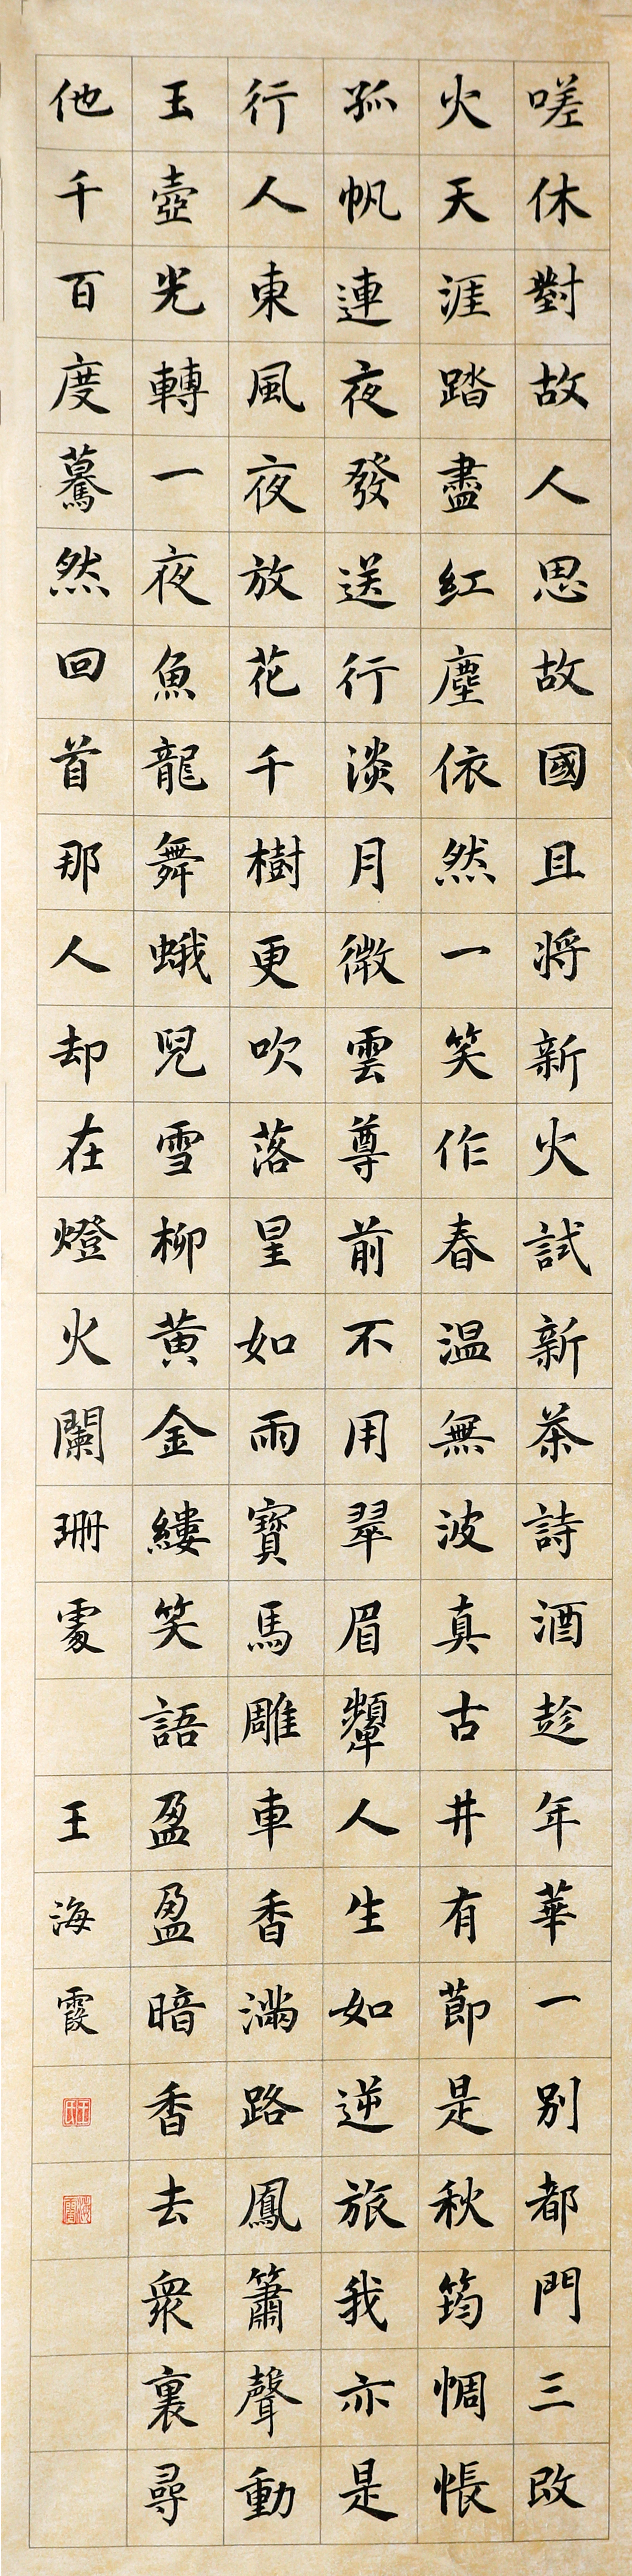 嗟休對故人思故國且將新火試新茶詩酒趁年華一别都門三改
火天涯踏盡紅塵依然一笑作春温無波真古井有節是秋筠惆悵
孤帆連夜發送行淡月微雲尊前不用翠眉顰人生如逆旅我亦是
行人東風夜放花千樹更吹落星如雨寶馬雕車香滿路鳳簫聲動
玉壺光轉一夜魚龍舞蛾兒雪柳黄金縷笑語盈盈暗香去衆裏尋
他千百度驀然回首那人却在燈火闌珊處
王海霞